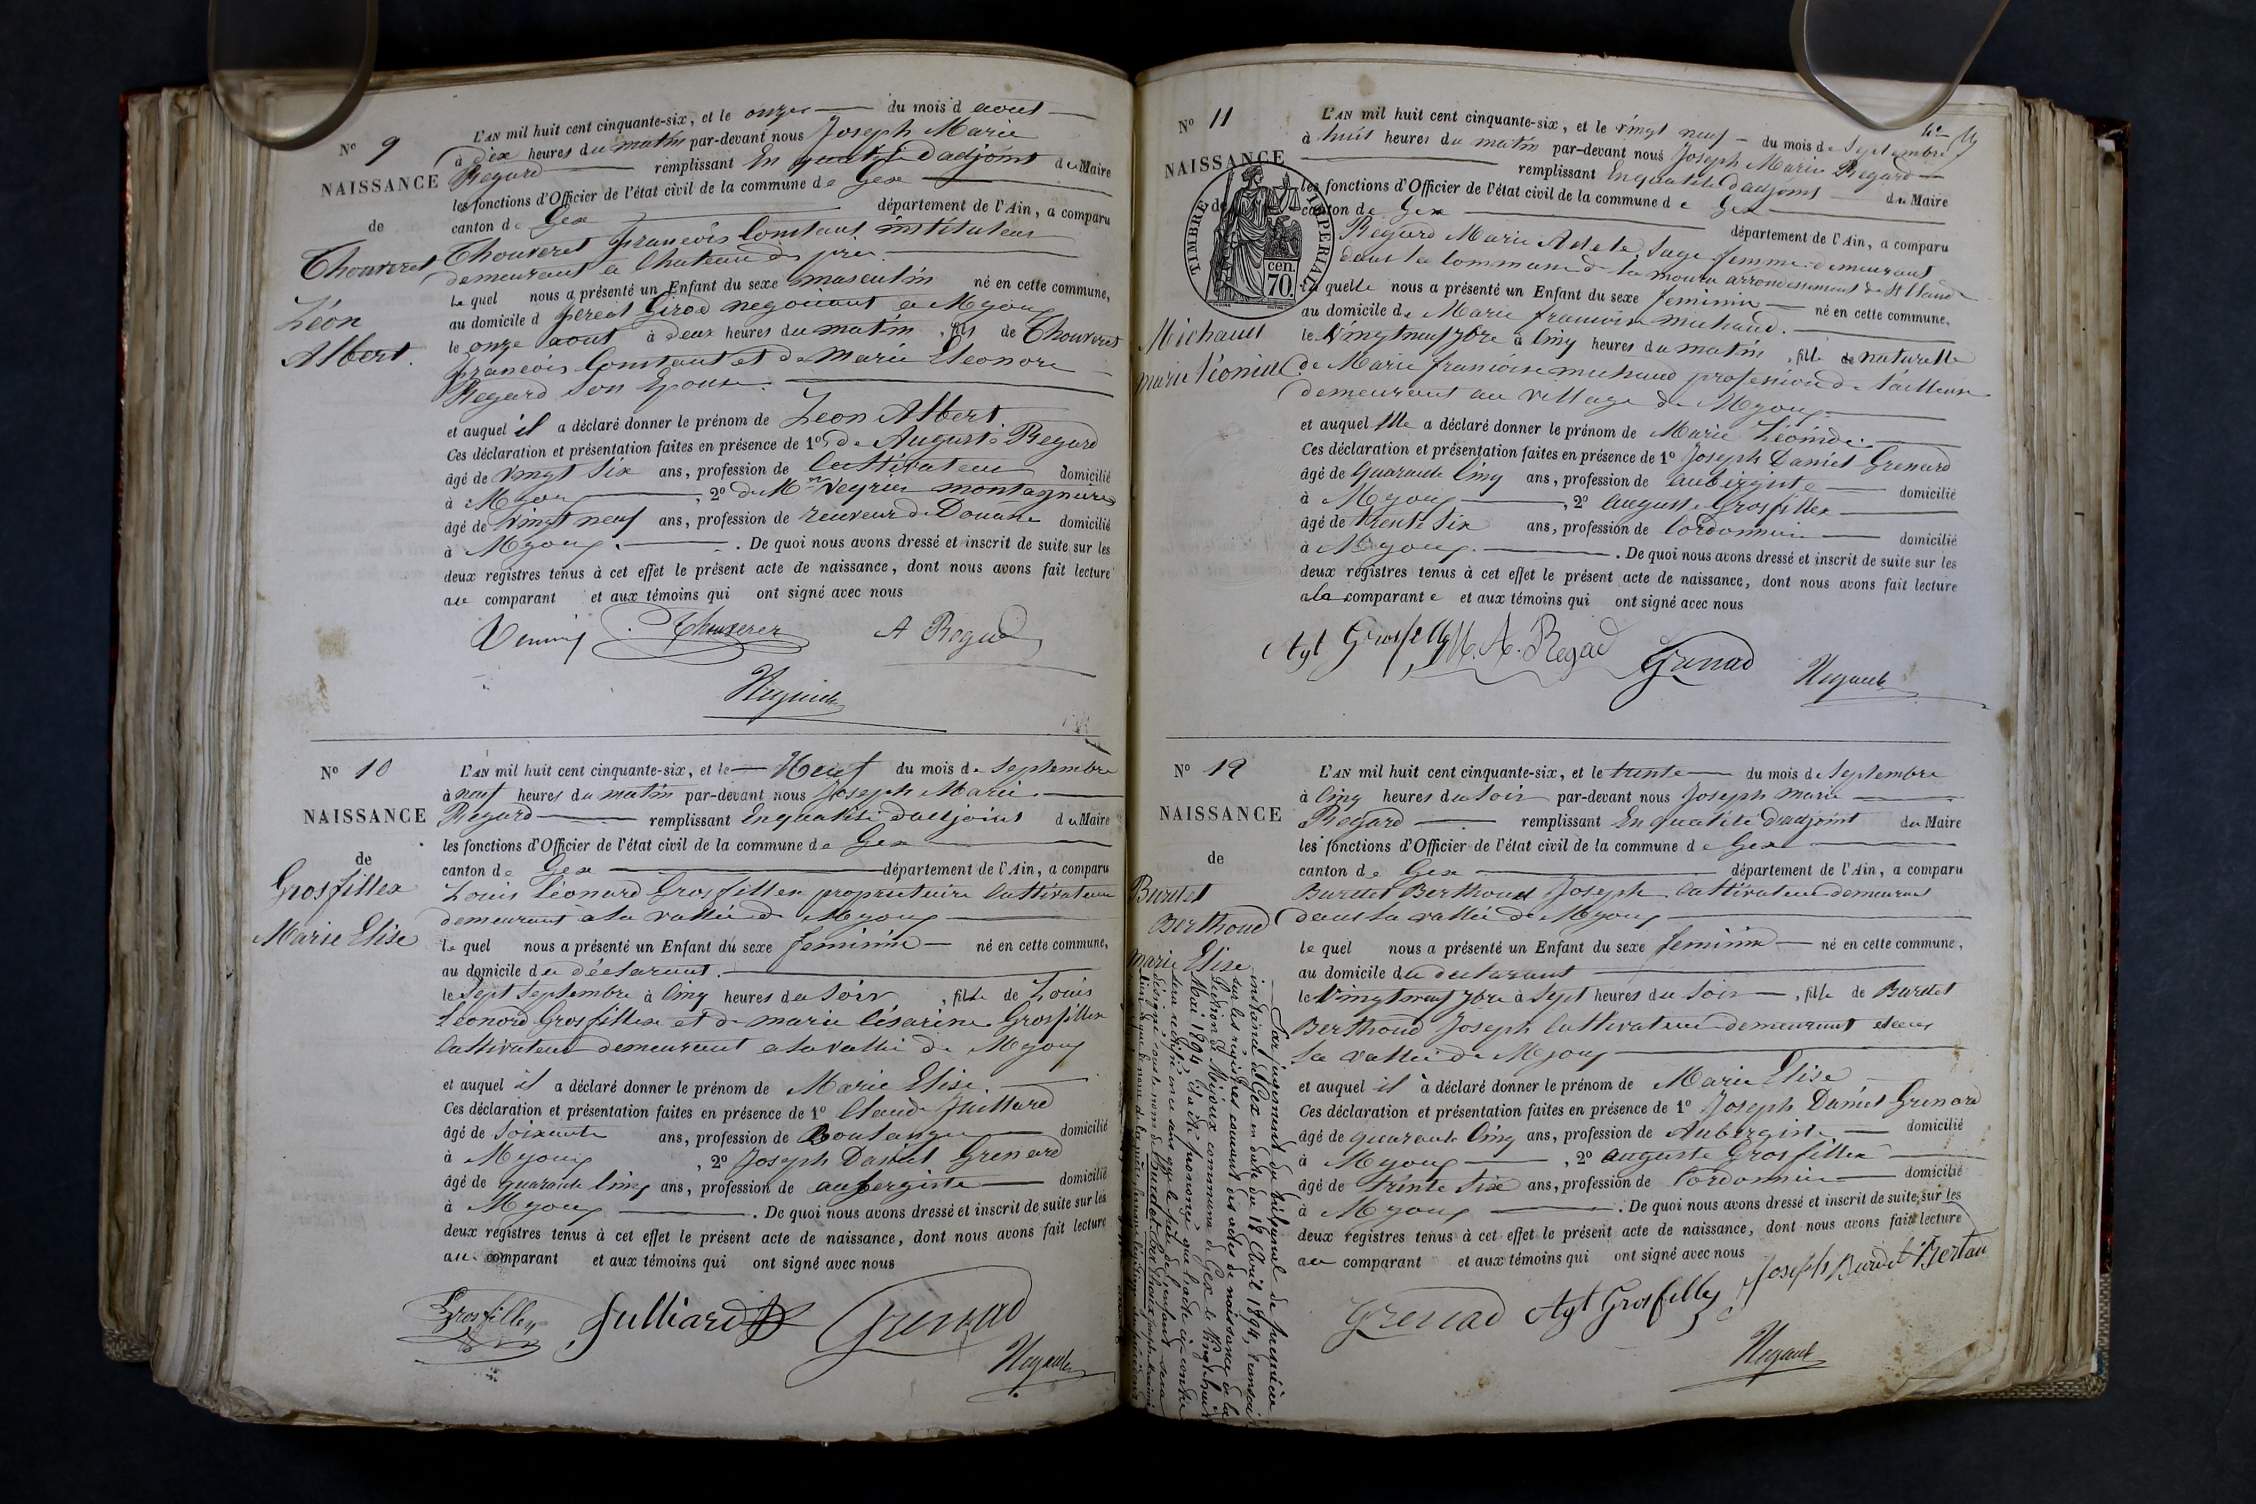 N° 9
NAISSANCE
de
Thouveret
Léon
Albert.
L'AN mil huit cent cinquante-six, et le onze du mois d aout
à dix heures du matin par-devant nous Joseph Marie
Regard remplissant En qualité D'adjoint du Maire
les fonctions d'Officier de l'état civil de la commune de Gex
canton de Gex département de l'Ain, a comparu
Thouveret francois Constant instituteur
demeurant a Chateau des prés
le quel nous a présenté un Enfant du sexe masculin né en cette commune,
au domicile d Girod negociant a Mijoux
le onze aout à deux heures du matin, fils de Thouveret
francois Constant et de Marie Eleonore
Regard son Epouse.
et auquel il a déclaré donner le prénom de Leon Albert
Ces déclaration et présentation faites en présence de 1° de Auguste Regard
âgé de vingt six ans, profession de Cultivateur domicilié
à Myoux, 2° du Veyrier
âgé de vingt neuf ans, profession de receveur de Douane domicilié
à Myoux. De quoi nous avons dressé et inscrit de suite sur les
deux registres tenus à cet effet le présent acte de naissance, dont nous avons fait lecture
au comparant et aux témoins qui ont signé avec nous
Thouverez A Regad
N° 10
NAISSANCE
de
Grosfillex
Marie Elise
L'AN mil huit cent cinquante-six, et le Neuf du mois de Septembre
à neuf heures du matin par-devant nous Joseph Marie
Regard remplissant En qualité d'adjoint du Maire
les fonctions d'Officier de l'état civil de la commune de Gex
canton de Gex département de l'Ain, a comparu
Louis Léonard Grosfillex propriétaire Cultivateur
demeurant a la vallée de Myoux
le quel nous a présenté un Enfant du sexe feminin né en cette commune,
au domicile du déclarant.
le Sept Septembre à Cinq heures du Soir, fille de Louis
Leonord Grosfillex et de marie Césarine Grosfillex
Cultivateur demeurant a la vallée de Myoux
et auquel il a déclaré donner le prénom de Marie Elise.
Ces déclaration et présentation faites en présence de 1° Claude Juillard
âgé de Soixante ans, profession de Boulanger domicilié
à Myoux, 2° Joseph Daniel Grenard
âgé de quarante Cinq ans, profession de aubergiste domicilié
à Myoux. De quoi nous avons dressé et inscrit de suite sur les
deux registres tenus à cet effet le présent acte de naissance, dont nous avons fait lecture
au comparant et aux témoins qui ont signé avec nous
Grosfillex Julliard Grenad
N° 11
NAISSANCE
de
TIMBRE IMPERIAL
70 cen.
Michaud
marie Léonide
L'AN mil huit cent cinquante-six, et le vingt neuf du mois de Septembre
à huit heures du matin par-devant nous Joseph Marie Regard
remplissant En qualité D'adjoint du Maire
les fonctions d'Officier de l'état civil de la commune de Gex
canton de Gex département de l'Ain, a comparu
Regard Marie Adele, Sage femme demeurant
dans la Commune de la moura arrondissement de St Claude
la quelle nous a présenté un Enfant du sexe feminin né en cette commune,
au domicile de Marie francoise michaud.
le Vingt neuf 7bre à Cinq heures du matin, fille de naturelle
de Marie francoise michaud profession de tailleuse
demeurant au village de Myoux
et auquel Elle a déclaré donner le prénom de Marie Léonide.
Ces déclaration et présentation faites en présence de 1° Joseph Daniel Grenard
âgé de Quarante Cinq ans, profession de aubergiste domicilié
à Myoux, 2° auguste Grosfillex
âgé de trente Six ans, profession de Cordonnier domicilié
à Myoux. De quoi nous avons dressé et inscrit de suite sur les
deux registres tenus à cet effet le présent acte de naissance, dont nous avons fait lecture
a la comparante et aux témoins qui ont signé avec nous
Agt Grosfillex M. A. Regad Grenad
N° 12
NAISSANCE
de
Burdet
Berthoud
marie Elise
L'AN mil huit cent cinquante-six, et le trente du mois de Septembre
à Cinq heures du Soir par-devant nous Joseph marie
Regard remplissant En qualité D'adjoint du Maire
les fonctions d'Officier de l'état civil de la commune de Gex
canton de Gex département de l'Ain, a comparu
Burdet Berthoud Joseph Cultivateur demeurant
dans la vallée de Myoux
le quel nous a présenté un Enfant du sexe feminin né en cette commune,
au domicile du declarant
le Vingt neuf 7bre à Sept heures du Soir, fille de Burdet
Berthoud Joseph Cultivateur demeurant dans
la vallée de Myoux
et auquel il a déclaré donner le prénom de Marie Elise
Ces déclaration et présentation faites en présence de 1° Joseph Daniel Grenard
âgé de quarante Cinq ans, profession de Aubergiste domicilié
à Myoux, 2° auguste Grosfillex
âgé de Trente Six ans, profession de Cordonnier domicilié
à Myoux. De quoi nous avons dressé et inscrit de suite, sur les
deux registres tenus à cet effet le présent acte de naissance, dont nous avons fait lecture
au comparant et aux témoins qui ont signé avec nous
Grenad Agt Grosfillex Joseph Burdet Bertau
Par jugement du tribunal de première
instance de Gex en date du 18 Avril 1894, transcrit
sur les registres courant des actes de naissance de la
Section de Mijoux commune de Gex le vingt-huit
Mai 1894, il a été prononcé que l'acte ci-contre
sera rectifié en ce sens que le père de l'enfant sera
désigné sous le nom de Burdet